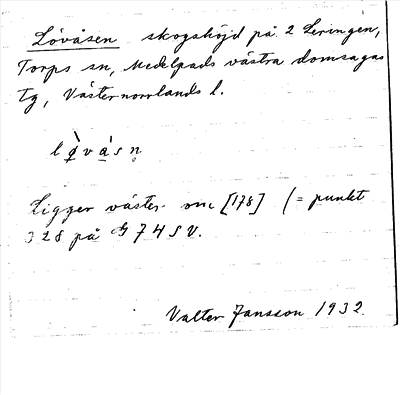 Lövåsen skogshöjd på 2 Leringen,
Torps sn, Medelpads västra domsagas
tg, Västernorrlands l.
Ligger väster om [178] (= punkt
328 på G 74 SV.
Valter Jansson 1932.